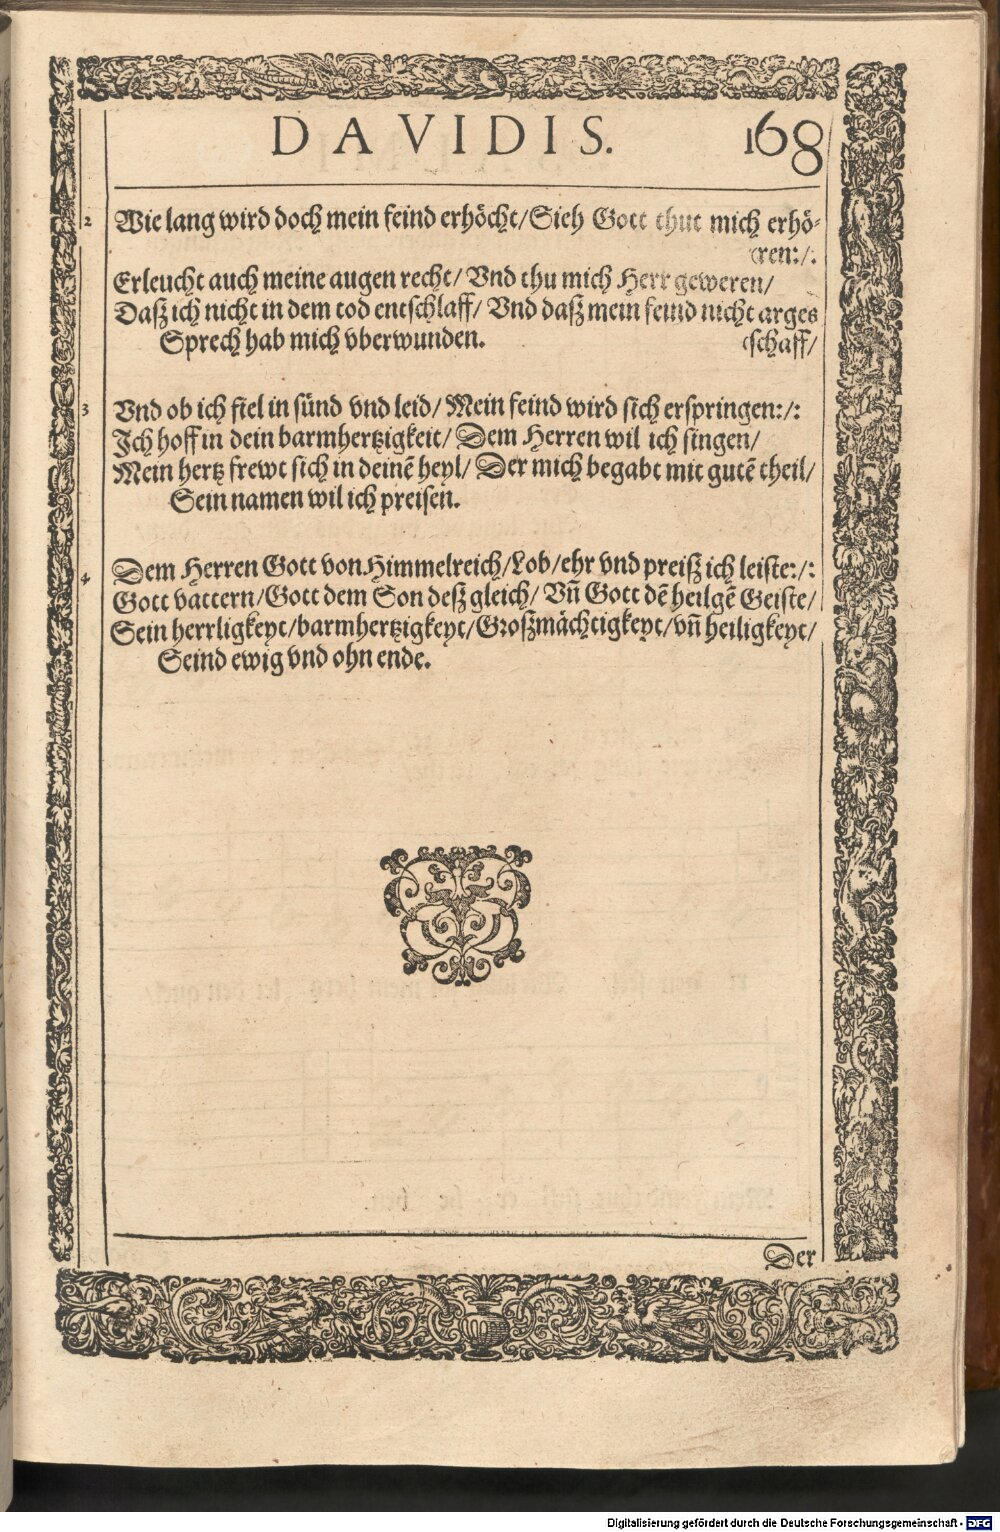 DAVIDIS. 168
2 Wie lang wird doch mein feind erhöcht/Sieh Gott thut mich erhö-
(ren:/:
Erleucht auch meine augen recht/ Vnd thu mich Herr geweren/
Dasz ich nicht in dem tod entschlaff/ Vnd dasz mein feind nicht arges
Sprech hab mich vberwunden. (schaff/
3 Vnd ob ich fiel in sünd vnd leid/ Mein feind wird sich erspringen:/:
Ich hoff in dein barmhertzigkeit/ Dem Herren wil ich singen/
Mein hertz frewt sich in deinē heyl/ Der mich begabt mit gutē theil/
Sein namen wil ich preisen.
4 Dem Herren Gott von Himmelreich/Lob/ehr vnd preisz ich leiste:/:
Gott vattern/Gott dem Son desz gleich/ Vn̄ Gott dē heilgē Geiste/
Sein herrligkeyt/barmhertzigkeyt/Groszmächtigkeyt/vn̄ heiligkeyt/
Seind ewig vnd ohn ende.
Der
Digitalisierung gefördert durch die Deutsche Forschungsgemeinschaft - DFG